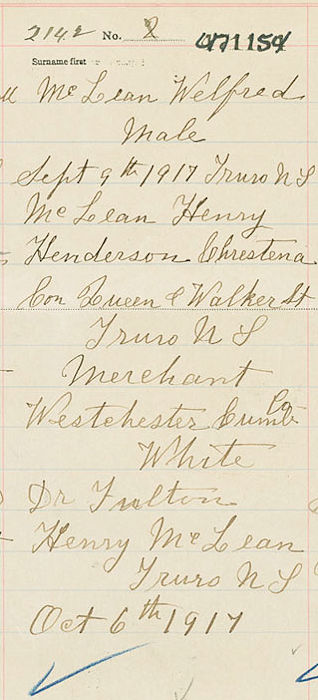 2142 No. 2 471154
Surname first
Mc Lean Welfred
Male
Sept 9th 1917 Truro N S
Mc Lean Henry
Henderson Chrestena
Con Queen & Walker St
Truro N S
Merchant
Westchester Cumb Co
White
Dr Fulton
Henry Mc Lean
Truro N S
Oct 6th 1917